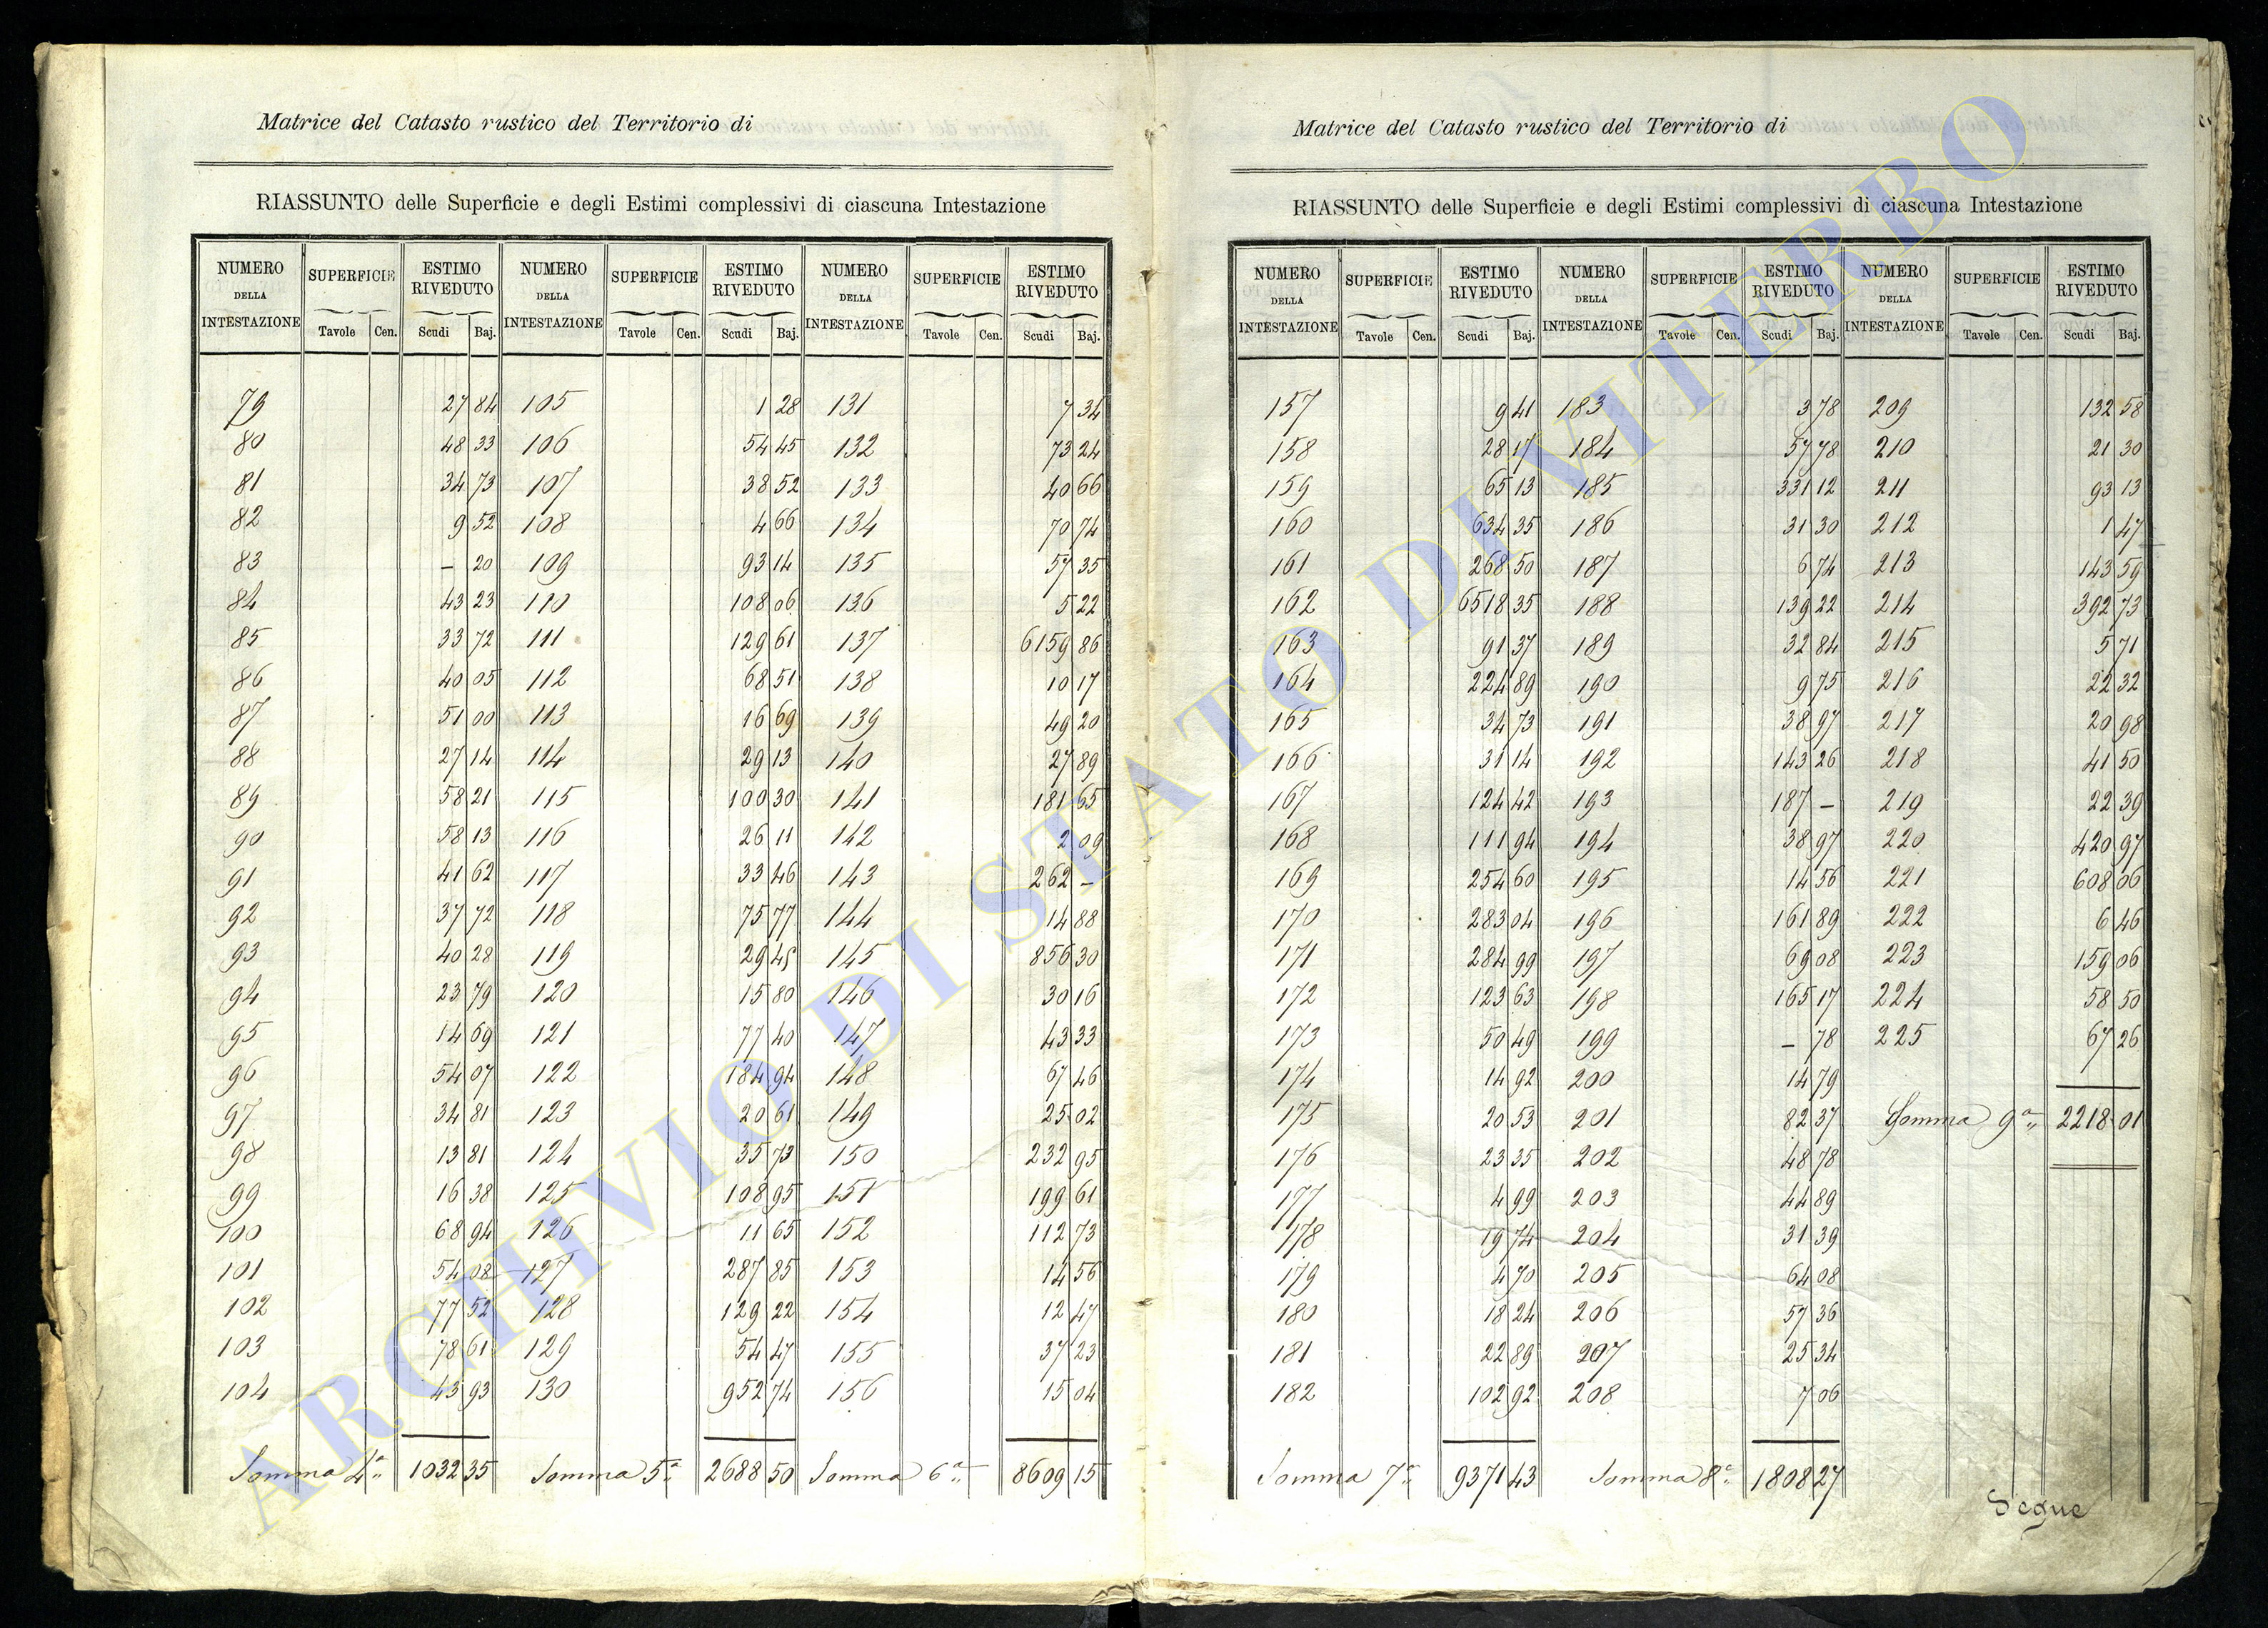 Matrice del Catasto rustico del Territorio di
RIASSUNTO delle Superficie e degli Estimi complessivi di ciascuna Intestazione
NUMERO DELLA INTESTAZIONE SUPERFICIE Tavole Cen. ESTIMO RIVEDUTO Scudi Baj. NUMERO DELLA INTESTAZIONE SUPERFICIE Tavole Cen. ESTIMO RIVEDUTO Scudi Baj. NUMERO DELLA INTESTAZIONE SUPERFICIE Tavole Cen. ESTIMO RIVEDUTO Scudi Baj.
79 27 84 105 1 28 131 7 34
80 48 33 106 54 45 132 73 24
81 34 73 107 38 52 133 40 66
82 9 52 108 4 66 134 70 74
83 – 20 109 93 14 135 57 35
84 43 23 110 108 06 136 5 22
85 33 72 111 129 61 137 6159 86
86 40 05 112 68 51 138 10 17
87 51 00 113 16 69 139 49 20
88 27 14 114 29 13 140 27 89
89 58 21 115 100 30 141 181 65
90 58 13 116 26 11 142 2 09
91 41 62 117 33 46 143 262 –
92 37 72 118 75 77 144 14 88
93 40 28 119 29 45 145 856 30
94 23 79 120 15 80 146 30 16
95 14 69 121 77 40 147 43 33
96 54 07 122 184 94 148 67 46
97 34 81 123 20 61 149 25 02
98 13 81 124 35 73 150 232 95
99 16 38 125 108 95 151 199 61
100 68 94 126 11 65 152 112 73
101 54 08 127 287 85 153 14 56
102 77 52 128 129 22 154 12 47
103 78 61 129 54 47 155 37 23
104 43 93 130 952 74 156 15 04
Somma 4a 1032 35 Somma 5a 2688 50 Somma 6a 8609 15
Matrice del Catasto rustico del Territorio di
RIASSUNTO delle Superficie e degli Estimi complessivi di ciascuna Intestazione
NUMERO DELLA INTESTAZIONE SUPERFICIE Tavole Cen. ESTIMO RIVEDUTO Scudi Baj. NUMERO DELLA INTESTAZIONE SUPERFICIE Tavole Cen. ESTIMO RIVEDUTO Scudi Baj. NUMERO DELLA INTESTAZIONE SUPERFICIE Tavole Cen. ESTIMO RIVEDUTO Scudi Baj.
157 9 41 183 3 78 209 132 58
158 28 17 184 57 78 210 21 30
159 65 13 185 331 12 211 93 13
160 634 35 186 31 30 212 1 47
161 268 50 187 6 74 213 143 59
162 6518 35 188 139 22 214 392 73
163 91 37 189 32 84 215 5 71
164 224 89 190 9 75 216 22 32
165 34 73 191 38 97 217 20 98
166 31 14 192 143 26 218 41 50
167 124 42 193 187 – 219 22 39
168 111 94 194 38 97 220 420 97
169 254 60 195 14 56 221 608 06
170 283 04 196 161 89 222 6 46
171 284 99 197 69 08 223 159 06
172 123 63 198 165 17 224 58 50
173 50 49 199 – 78 225 67 26
174 14 92 200 14 79
175 20 53 201 82 37 Somma 9a 2218 01
176 23 35 202 48 78
177 4 99 203 44 89
178 19 74 204 31 39
179 4 70 205 64 08
180 18 24 206 57 36
181 22 89 207 25 34
182 102 92 208 7 06
Somma 7a 9371 43 Somma 8a 1808 27
Segue
ARCHIVIO DI STATO DI VITERBO